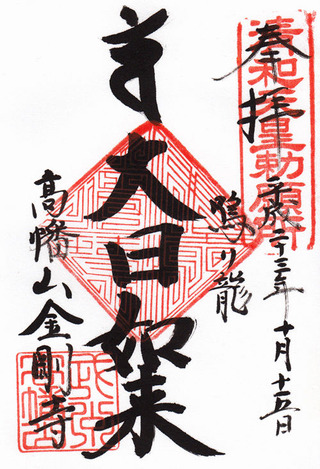 奉拝
清和天皇勅願所
平成二十三年十月十五日
鳴り龍
大日如来
高幡山金剛寺